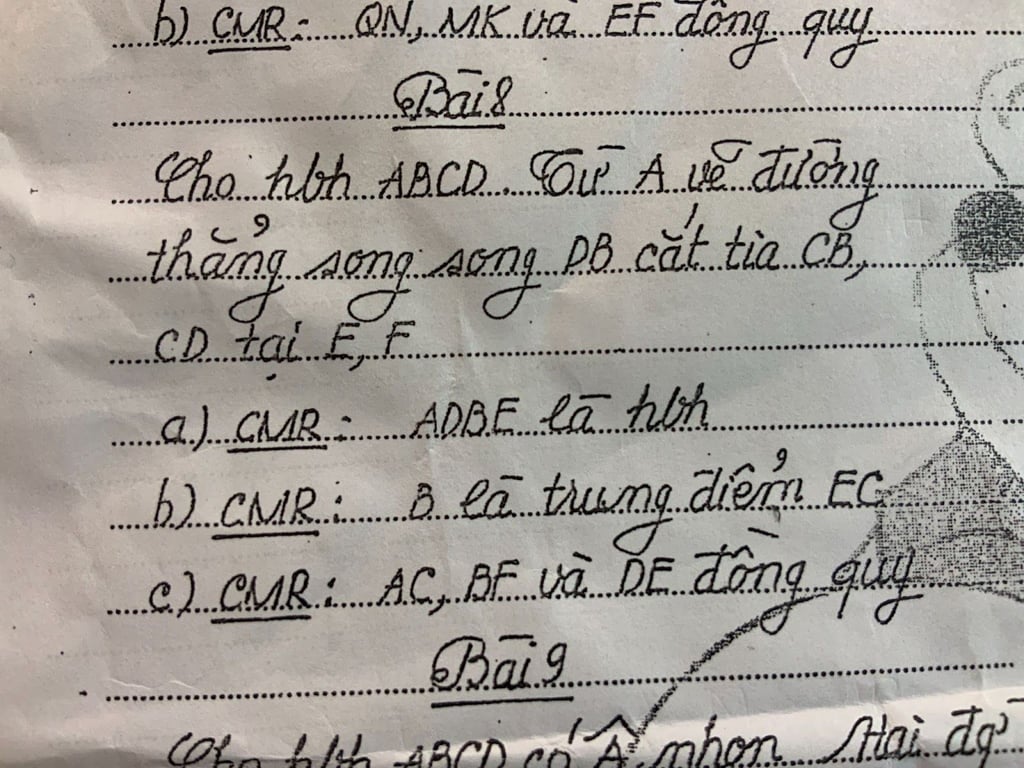 b) CMR: QN, MK và EF đồng quy
Bài 8
Cho hbh ABCD. Từ A vẽ đường
thẳng song song DB cắt tia CB,
CD tại E, F
a) CMR: ADBE là hbh
b) CMR: B là trung điểm EC
c) CMR: AC, BF và DE đồng quy
Bài 9
Cho hbh ABCD có Â nhọn Hai